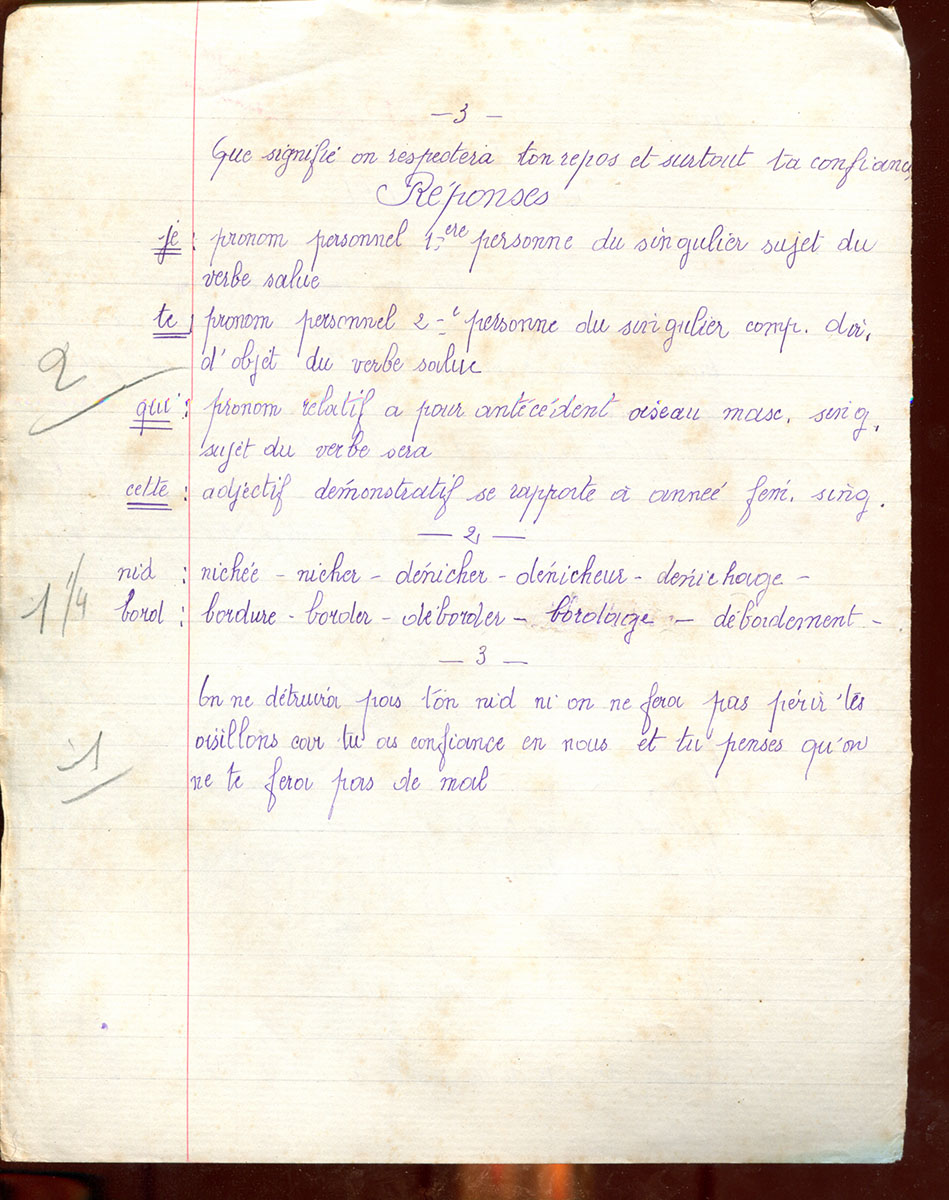 — 3 —
Que signifie on respectera ton repos et surtout ta confiance
Réponses
je : pronom personnel 1ère personne du singulier sujet du
verbe salue
te : pronom personnel 2e personne du singulier comp. dir.
d'objet du verbe salue
2
qui : pronom relatif a pour antécédent oiseau masc. sing.
sujet du verbe sera
cette : adjectif démonstratif se rapporte à année fém. sing.
— 2 —
nid : nichée - nicher - dénicher - dénicheur - denichage -
1 1/4
bord : bordure - border - déborder - bordage - débordement -
— 3 —
On ne détruira pas ton nid ni on ne fera pas périr tes
oisillons car tu as confiance en nous et tu penses qu'on
1
ne te fera pas de mal